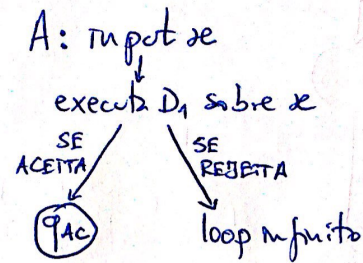 A: input x
executa D₁ sobre x
SE ACEITA
SE REJEITA
qAC
loop infinito